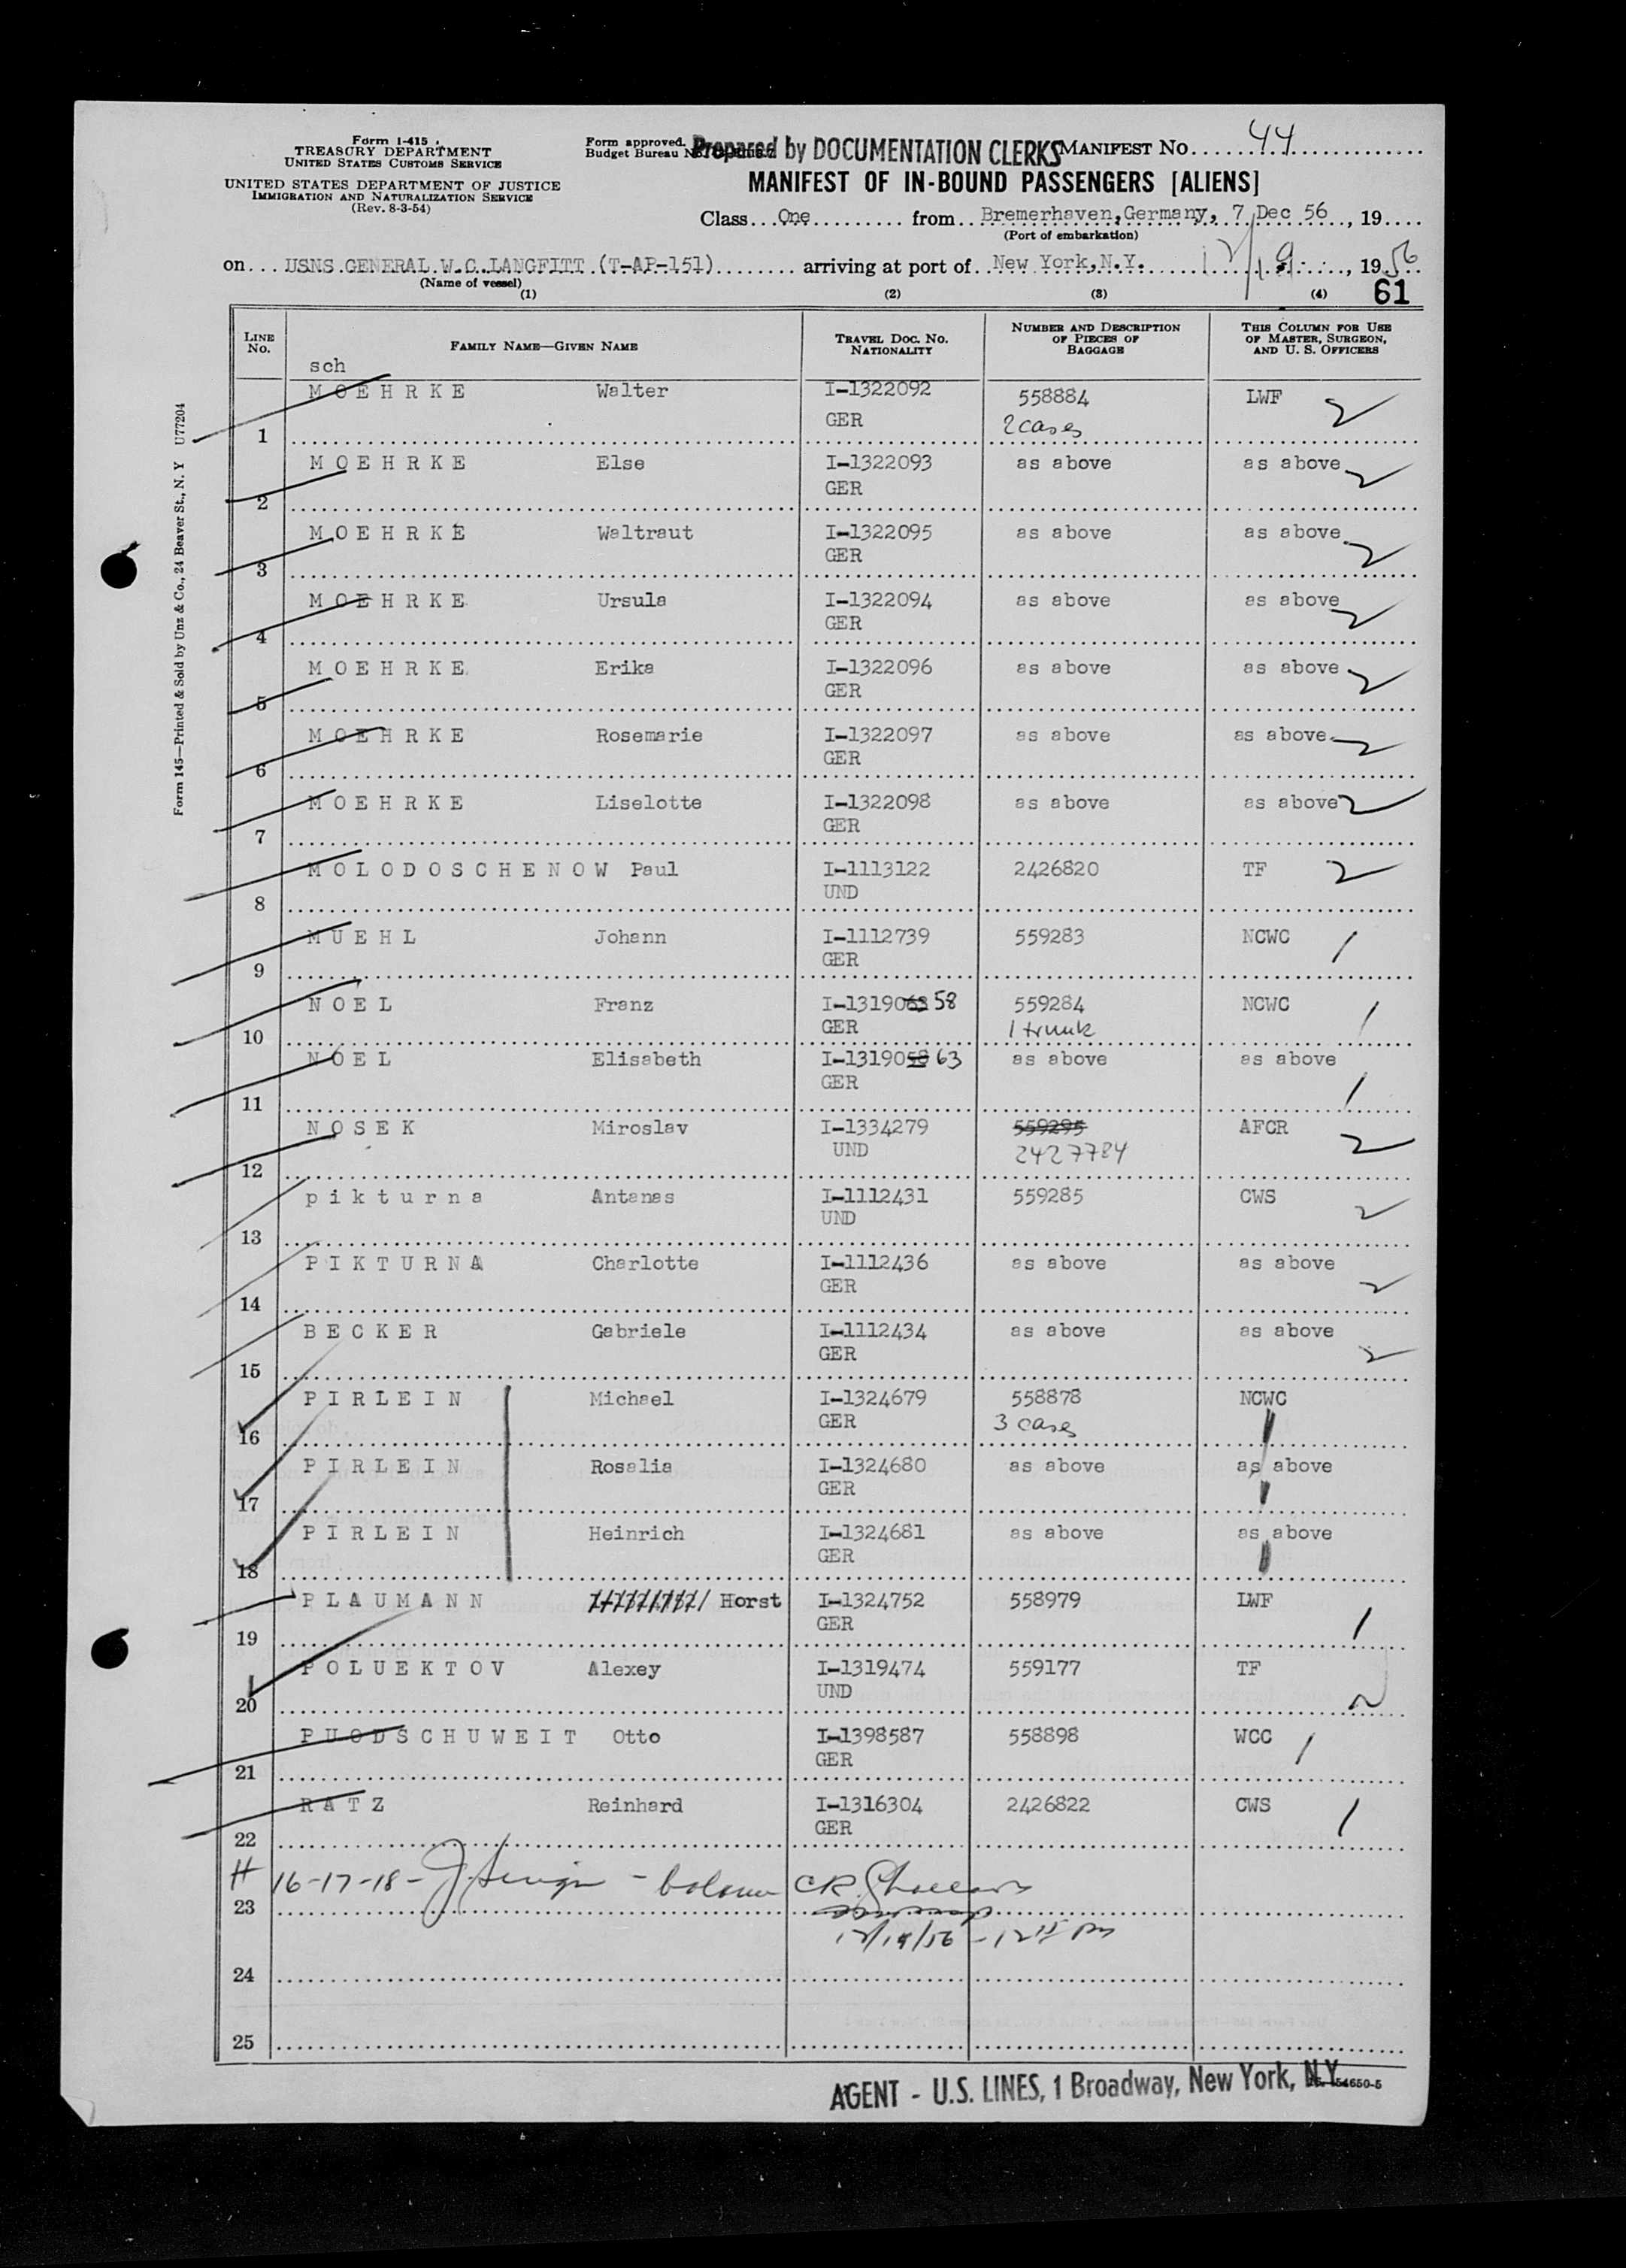 Form I-415
TREASURY DEPARTMENT
UNITED STATES CUSTOMS SERVICE
UNITED STATES DEPARTMENT OF JUSTICE
IMMIGRATION AND NATURALIZATION SERVICE
(Rev. 8-3-54)
Form approved.
Budget Bureau
Prepared by DOCUMENTATION CLERKS
MANIFEST No. 44
MANIFEST OF IN-BOUND PASSENGERS [ALIENS]
Class One from Bremerhaven, Germany, 7 Dec 56, 19
(Port of embarkation)
on USNS GENERAL W.C. LANGFITT (T-AP-151) arriving at port of New York, N.Y. 12/19, 1956
(Name of vessel)
(1) (2) (3) (4) 61
LINE No. FAMILY NAME—GIVEN NAME TRAVEL DOC. NO. NATIONALITY NUMBER AND DESCRIPTION OF PIECES OF BAGGAGE THIS COLUMN FOR USE OF MASTER, SURGEON, AND U. S. OFFICERS
sch
1 MOEHRKE Walter I-1322092 GER 558884 2 cases LWF 2
2 MOEHRKE Else I-1322093 GER as above as above 2
3 MOEHRKE Waltraut I-1322095 GER as above as above 2
4 MOEHRKE Ursula I-1322094 GER as above as above 2
5 MOEHRKE Erika I-1322096 GER as above as above 2
6 MOEHRKE Rosemarie I-1322097 GER as above as above 2
7 MOEHRKE Liselotte I-1322098 GER as above as above 2
8 MOLODOSCHENOW Paul I-1113122 UND 2426820 TF 2
9 MUEHL Johann I-1112739 GER 559283 NCWC 1
10 NOEL Franz I-1319063 58 GER 559284 1 trunk NCWC 1
11 NOEL Elisabeth I-1319058 63 GER as above as above 1
12 NOSEK Miroslav I-1334279 UND 559295 2427784 AFCR 2
13 pikturna Antanas I-1112431 UND 559285 CWS 2
14 PIKTURNA Charlotte I-1112436 GER as above as above 2
15 BECKER Gabriele I-1112434 GER as above as above 2
16 PIRLEIN Michael I-1324679 GER 558878 3 cases NCWC
17 PIRLEIN Rosalia I-1324680 GER as above as above
18 PIRLEIN Heinrich I-1324681 GER as above as above
19 PLAUMANN Horst I-1324752 GER 558979 LWF 1
20 POLUEKTOV Alexey I-1319474 UND 559177 TF 2
21 PUODSCHUWEIT Otto I-1398587 GER 558898 WCC 1
22 RATZ Reinhard I-1316304 GER 2426822 CWS 1
23 # 16-17-18 -
12/19/56 - 12 15 pm
24
25
AGENT - U.S. LINES, 1 Broadway, New York, N.Y.
54650-5
Form 145—Printed & Sold by Unz & Co., 24 Beaver St., N. Y U77204